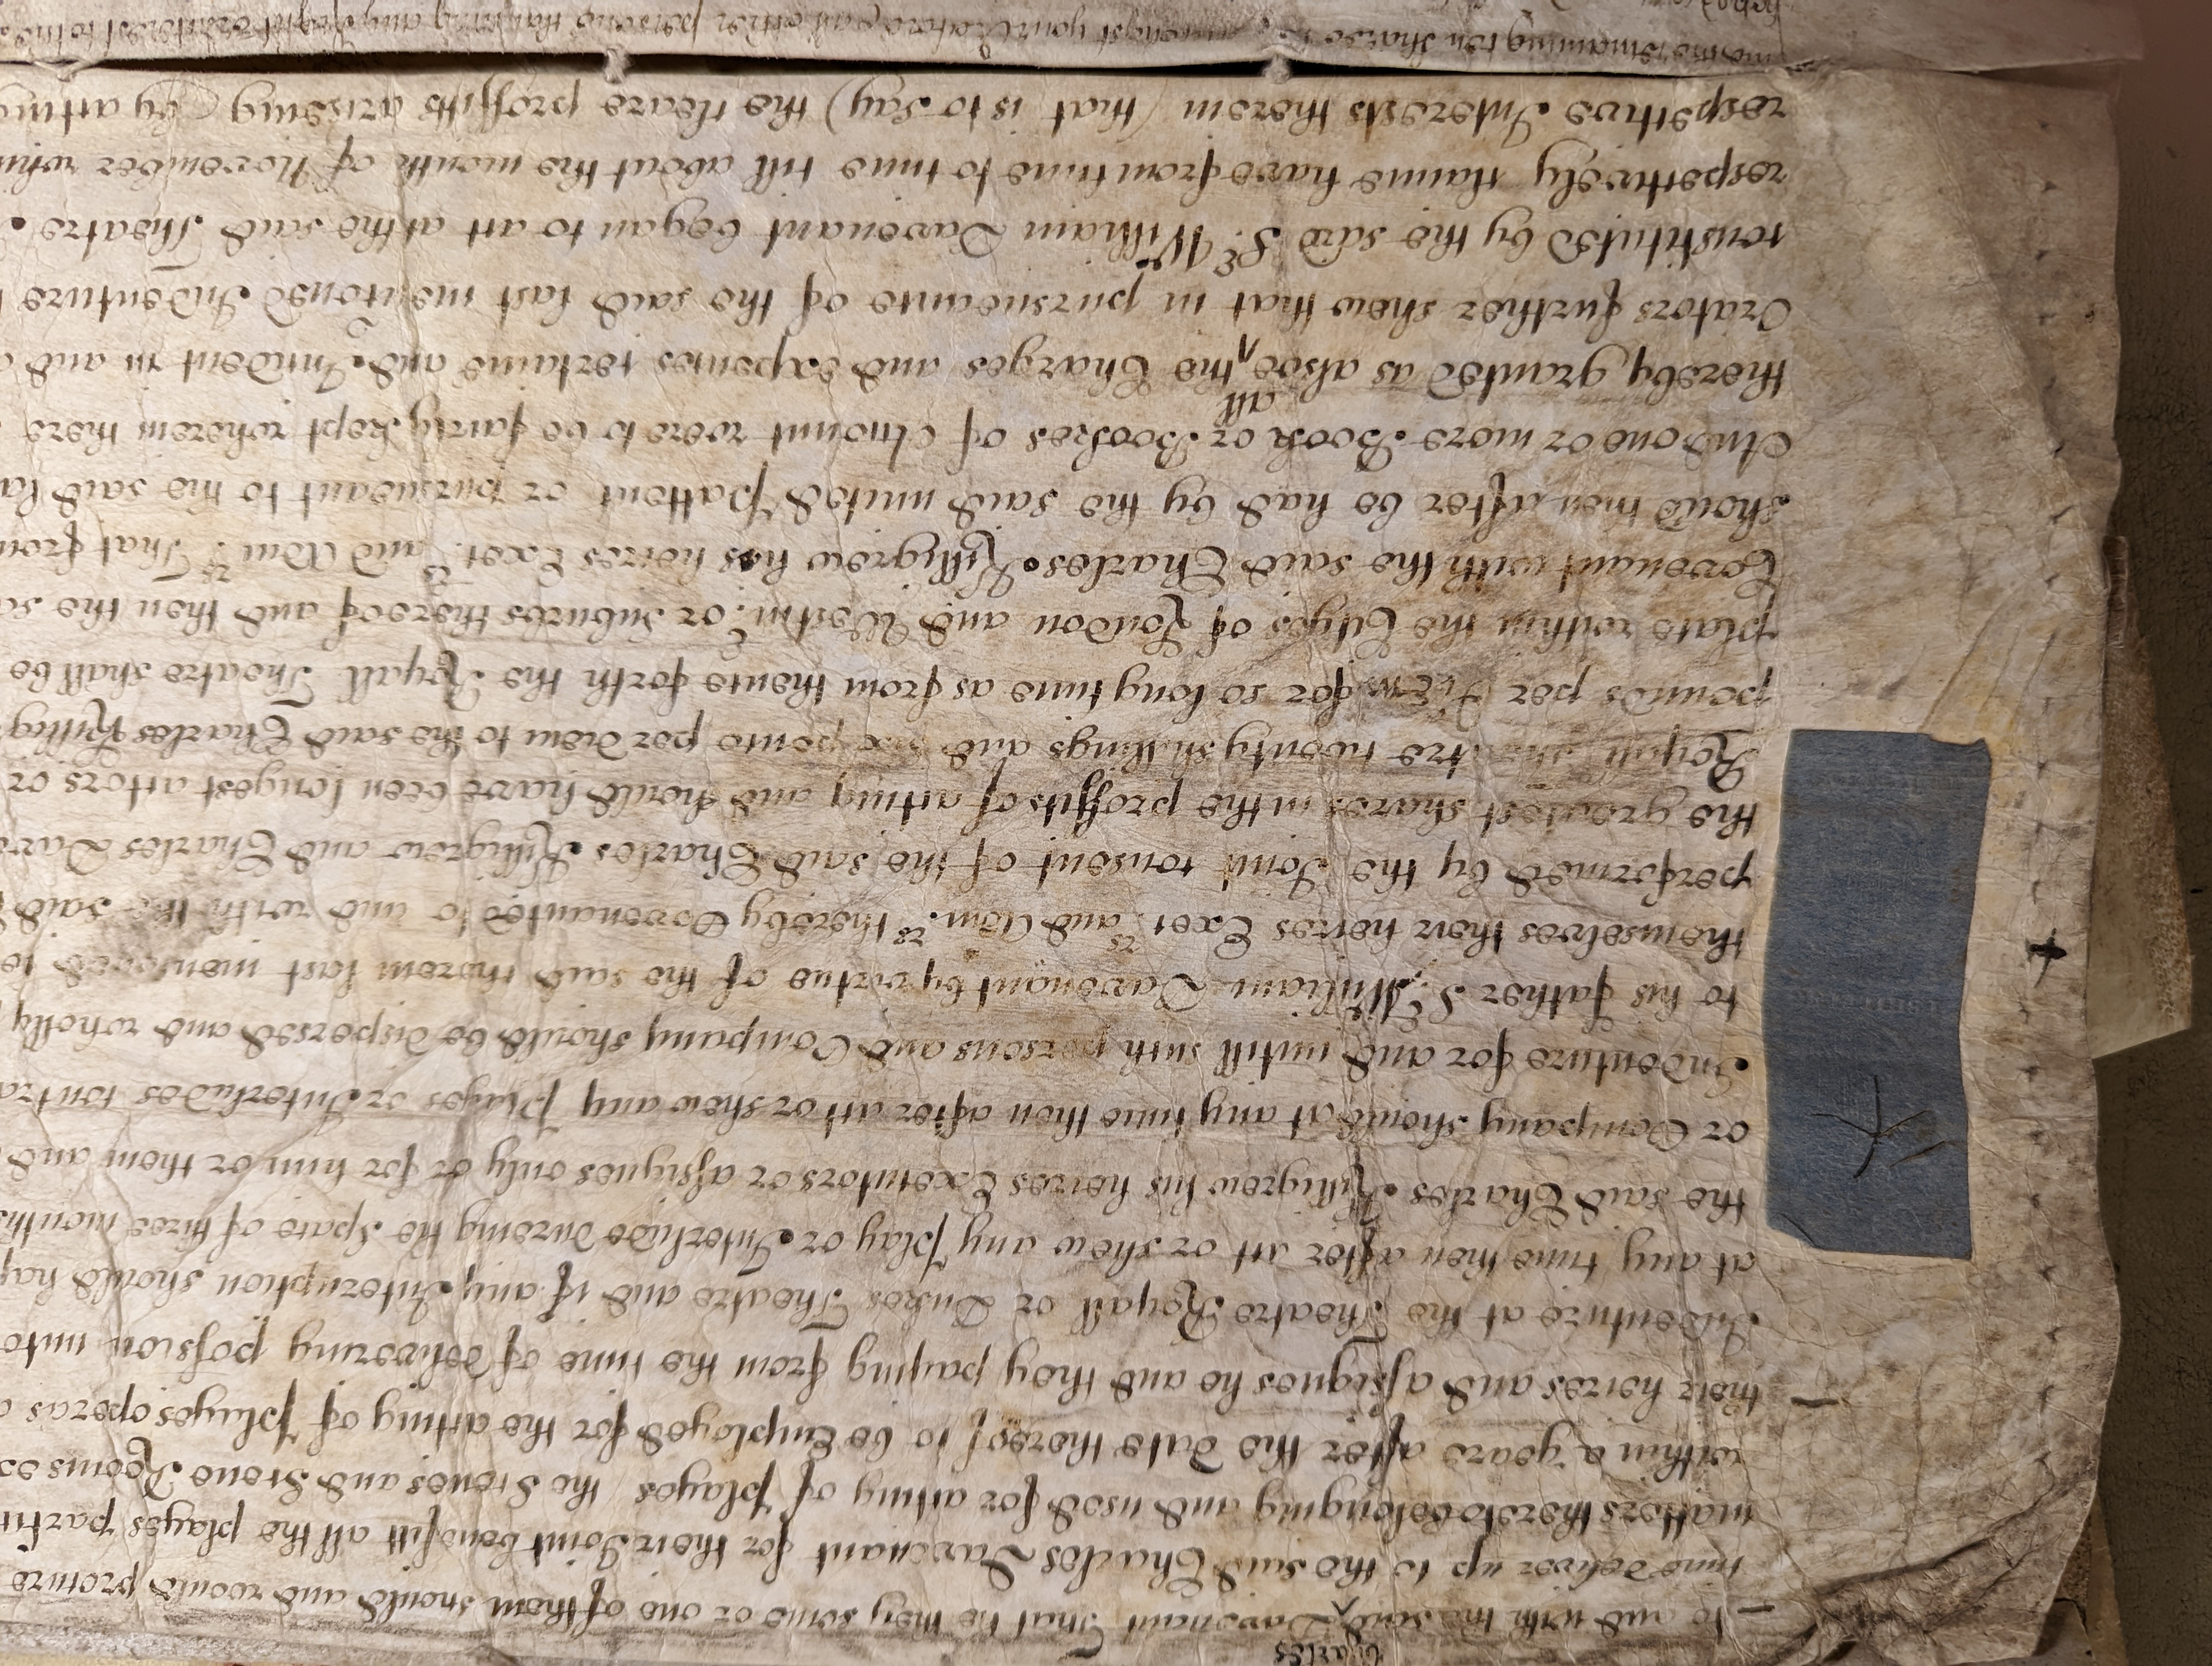 Charles
to and with the said Davenant That he they some or one of them should and would procure
time deliver up to the said Charles Davenant for their Joint benefitt all the playes
matters thereto belonging and used for acting of Playes the Scenes and Scene Roomes
within a yeare after the date thereof to be Employed for the acting of Playes operas
their heires and assignes he and they paying from the time of delivering possession unto
Indenture at the Theatre Royall or Dukes Theatre and if any Interuption should
at any time then after act or shew any Play or Interlude dureing the space of three months
the said Charles Killigrew his heires Executors or assignes only or for him or them and
or Company should at any time then after act or shew any Playes or Interludes
Indenture for and untill such persons and Company should be dispersed and wholly
to his father Sr. William Davenant by vertue of the said therein last menconed
themselves their heires Exects. and Admrs. thereby Covenanted to and with the said
performed by the Joint consent of the said Charles Killigrew and Charles
the greatest shares in the proffitts of acting and should have been longest actors or
Royall Theatre twenty shillings and six pence per diem to the said Charles
pounds per diem for so long time as from thence forth the Royall Theatre shall be
place within the Cityes of London and Westmr. or suburbs thereof and then the
Covenant with the said Charles Killigrew his heires Exects. and Admrs. That from
should then after be had by the said united Pattent or pursuant to the said
And one or more Book or Bookes of Account were to be fairly kept wherein there
all
thereby granted as alsoe the Charges and expences certaine and Incident in and
Orators further shew that in pursueance of the said last mentoned Indenture
constituted by the said Sr. William Davenant began to act at the said Theatre
respectively Claime have from time to time till about the month of November
respective Interests therein (that is to say) the cleare proffitts ariseing (by acting
remaining ten shares amongst your Orators and other persons Claiming any